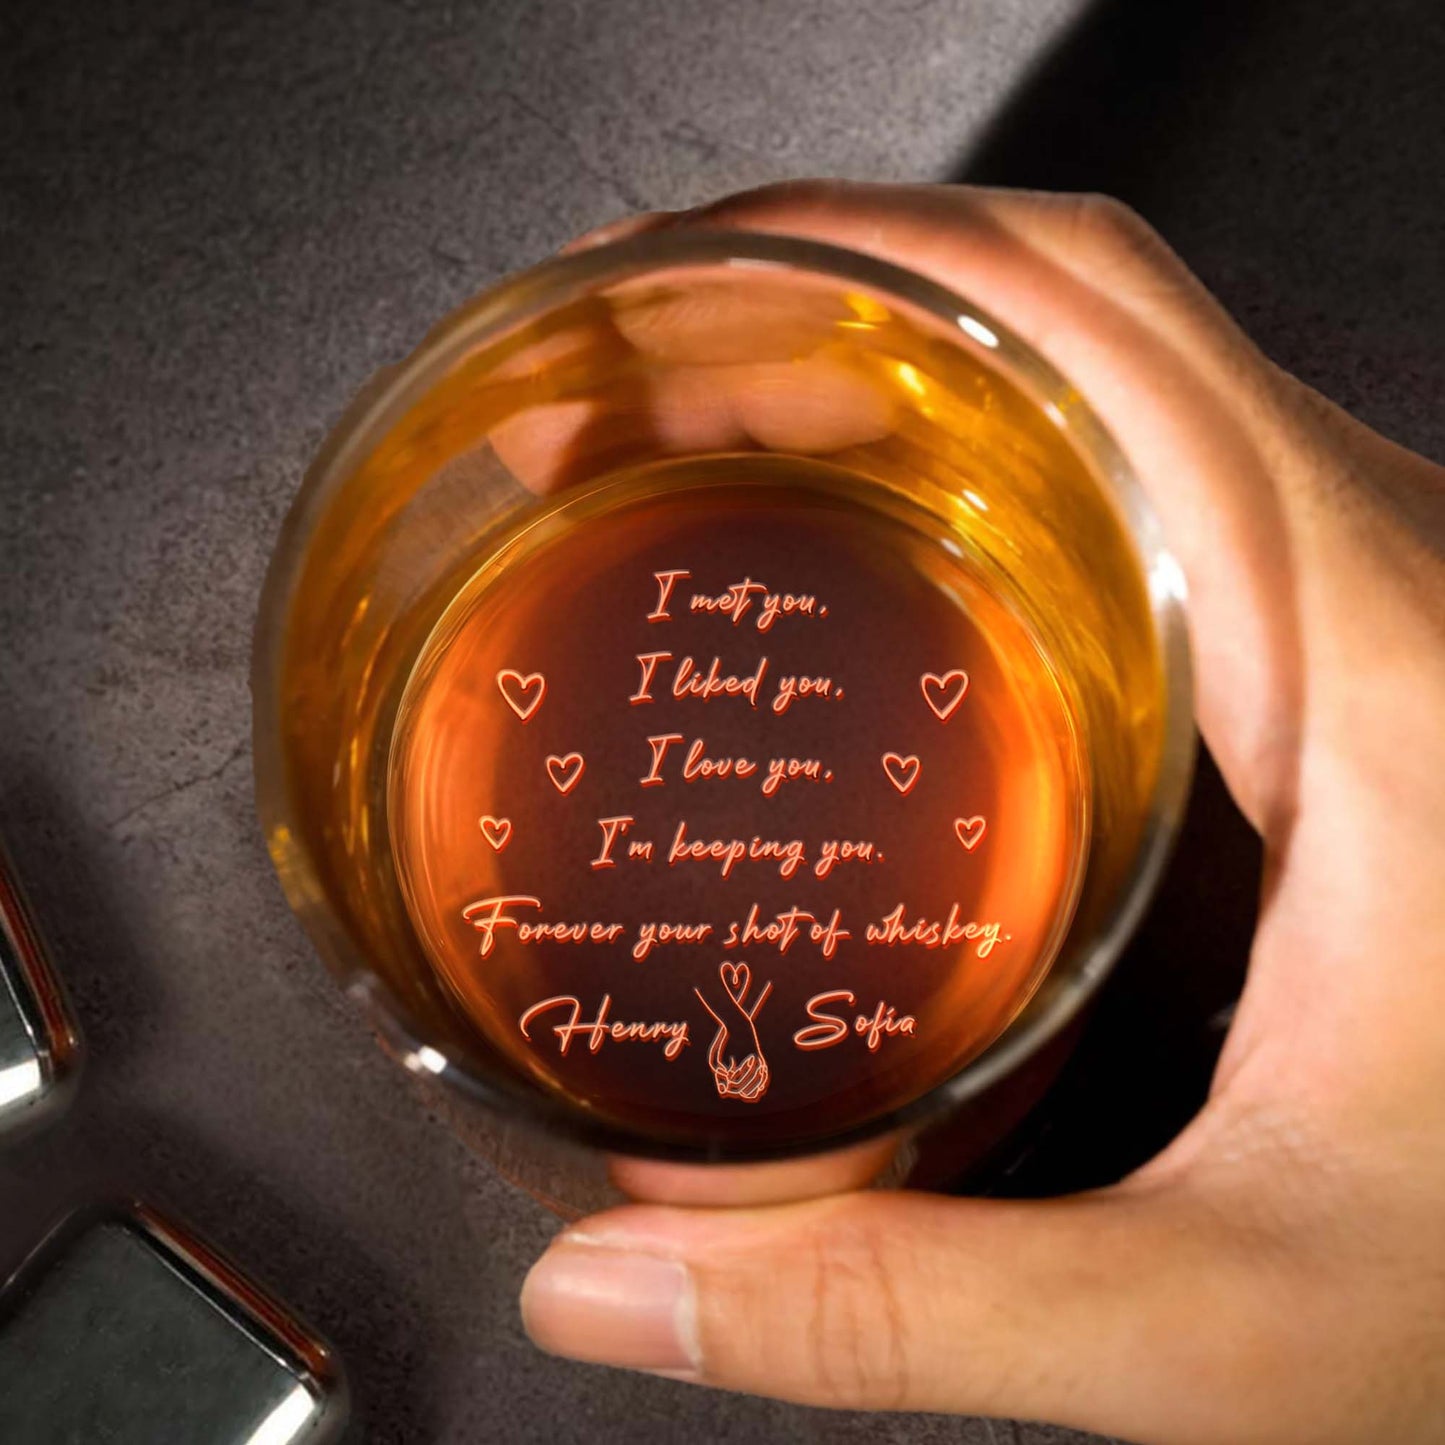 I met you,
I liked you,
I love you,
I'm keeping you.
Forever your shot of whiskey.
Henry Sofia